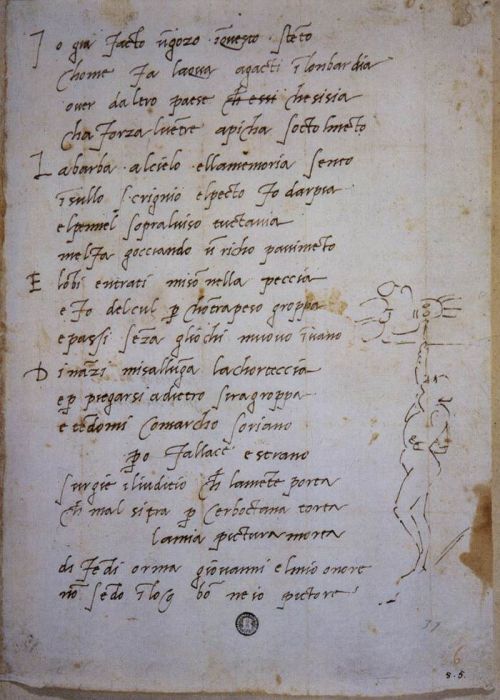 I o gia facto ūgozo īquesto stēto
chome fa laqua agacti ī lonbardia
over daltro paese ch̄ essi chesisia
cha forza lvētre apicha socto lmēto
L a barba alcielo ellamemoria sento
ī sullo scrignio elpecto fo darpia
elpēnel sopralviso tuctavia
melfa gocciando ū richo pavimēto
E lōbi entrati misō nella peccia
e fo delcul p chōtrapeso groppa
e passi sēza gliochi muovo ī vano
D ināzi misallūga lachorteccia
e p piegarsi adietro siragroppa
e tēdomi comarcho soriano
po fallace e strano
surgie iliudicio ch̄ lamēte porta
ch̄ mal sitra p cerboctana torta
lamia pictura morta
di fēdi orma giovanni elmio onore
nō sēdo ī loco bō ne io pictore
37
6
8.5.